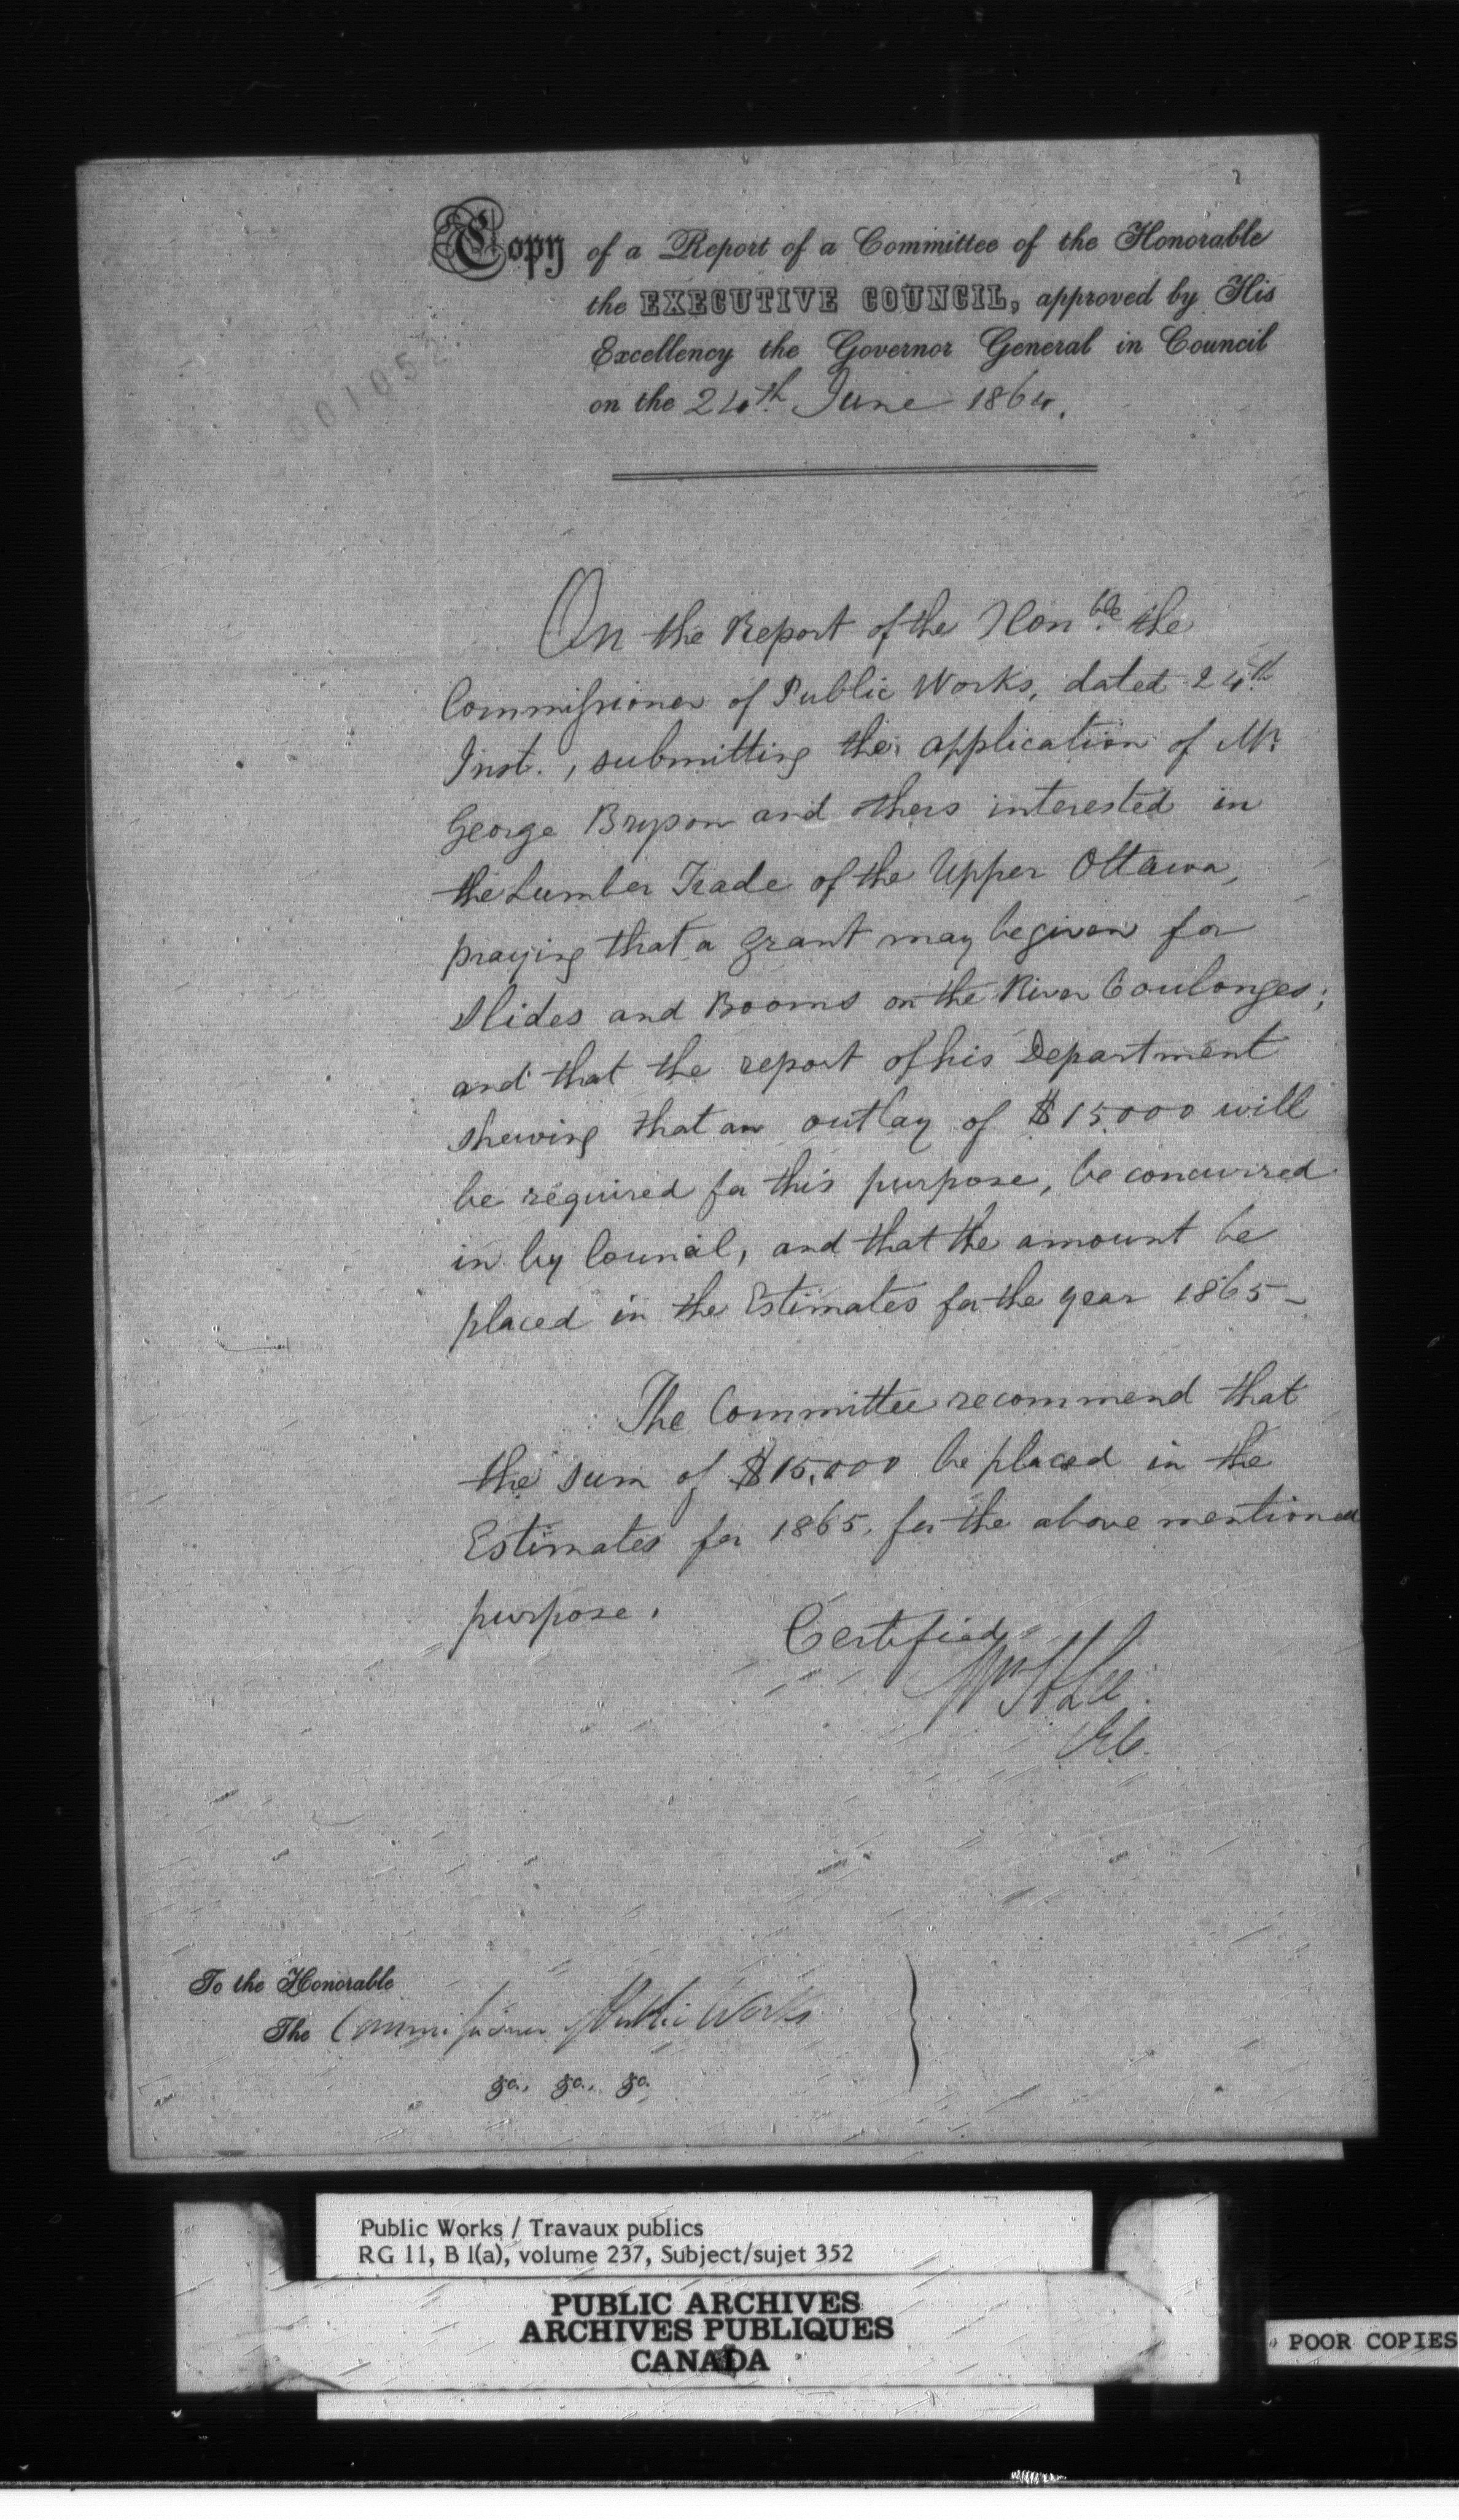 Copy of a Report of a Committee of the Honorable
the EXECUTIVE COUNCIL, approved by His
Excellency the Governor General in Council
on the 24th June 1864.
On the Report of the Honble the
Commissioner of Public Works, dated 24th
Inst., submitting the application of Mr
George Bryson and others interested in
the Lumber Trade of the Upper Ottawa,
praying that a grant may be given for
Slides and Booms on the River Coulonges;
and that the report of his Department
shewing that an outlay of $15,000 will
be required for this purpose, be concurred
in by Council, and that the amount be
placed in the Estimates for the year 1865 –
The Committee recommend that
the sum of $15,000 be placed in the
Estimates for 1865, for the above mentioned
purpose.
Certified
Wm H Lee
C.E.C.
To the Honorable
The Commissioner Public Works
&c., &c., &c.
Public Works / Travaux publics
RG 11, B 1(a), volume 237, Subject/sujet 352
PUBLIC ARCHIVES
ARCHIVES PUBLIQUES
CANADA
POOR COPIES